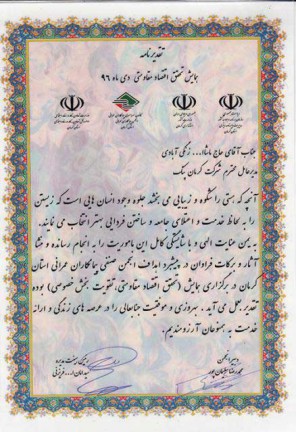 تقدیرنامه
همایش تحقق اقتصاد مقاومتی دی ماه ۹۶
جناب آقای حاج ماشاا... زنگی آبادی
مدیرعامل محترم شرکت کرمان
آنچه که هستی را شکوه و زیبایی می بخشد جلوه وجود انسان هایی است که زیستن
را به لحاظ خدمت و اعتلای جامعه و ساختن فردایی بهتر انتخاب می نمایند.
به یمن عنایت الهی و با شایستگی کامل این ماموریت را به انجام رسانده و منشا
آثار و برکات فراوان در پیشبرد اهداف انجمن صنفی پیمانکاران عمرانی استان
کرمان در برگزاری همایش (تحقق اقتصاد مقاومتی، تقویت بخش خصوصی) بوده
تقدیر بعمل می آید. بهروزی و موفقیت جنابعالی را در عرصه های زندگی و ارائه
خدمت به همنوعان آرزومندیم.
دبیر انجمن
محمدرضا سلیمان پور
رئیس هیئت مدیره